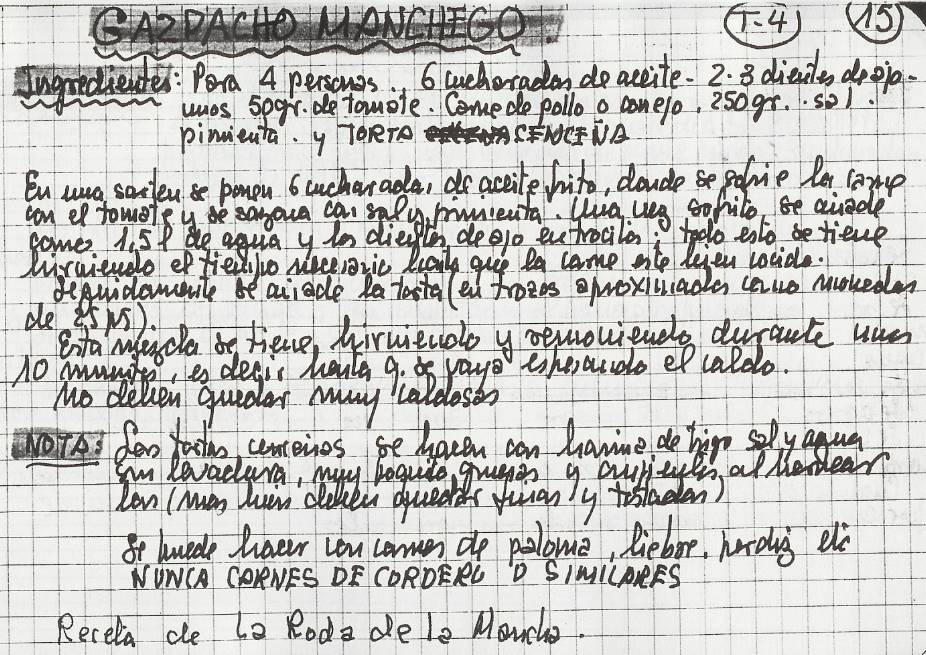 GAZPACHO MANCHEGO T-4 15
Ingredientes: Para 4 personas. 6 cucharadas de aceite - 2-3 dientes de ajo -
unos 50gr. de tomate. Carne de pollo o conejo, 250gr. . sal.
pimienta. y TORTA CENCEÑA
En una sarten se ponen 6 cucharadas de aceite frito, donde se sofrie la carne
con el tomate y se sazona con sal y pimienta. Una vez sofrito, se añade
como 1,5 l de agua y los dientes de ajo en trocitos; todo esto se tiene
hirviendo el tiempo necesario hasta que la carne este bien cocida.
Seguidamente se añade la torta (en trozos aproximados como monedas
de 25 pts).
Esta mezcla se tiene hirviendo y removiendo durante unos
10 minutos, es decir hasta q. se vaya espesando el caldo.
No deben quedar muy caldosos
NOTA: Las tortas cenceñas se hacen con harina de trigo sal y agua
sin levadura, muy poquito gruesas y crujientes al hornear
las (mas bien deben quedar finas y tostadas)
Se puede hacer con carnes de paloma, liebre, perdiz etc
NUNCA CARNES DE CORDERO O SIMILARES
Receta de La Roda de La Mancha.